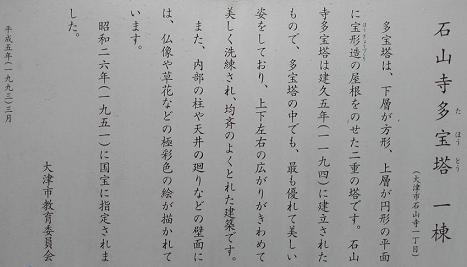 石山寺多宝塔 一棟
た ほう とう
(大津市石山寺一丁目)
多宝塔は、下層が方形、上層が円形の平面
に宝形造の屋根をのせた二重の塔です。石山
ほうぎょうづくり
寺多宝塔は建久五年(一一九四)に建立された
もので、多宝塔の中でも、最も優れて美しい
姿をしており、上下左右の広がりがきわめて
美しく洗練され、均斉のよくとれた建築です。
また、内部の柱や天井の廻りなどの壁面に
は、仏像や草花などの極彩色の絵が描かれて
います。
昭和二六年(一九五一)に国宝に指定されま
した。
大津市教育委員会
平成五年(一九九三)三月